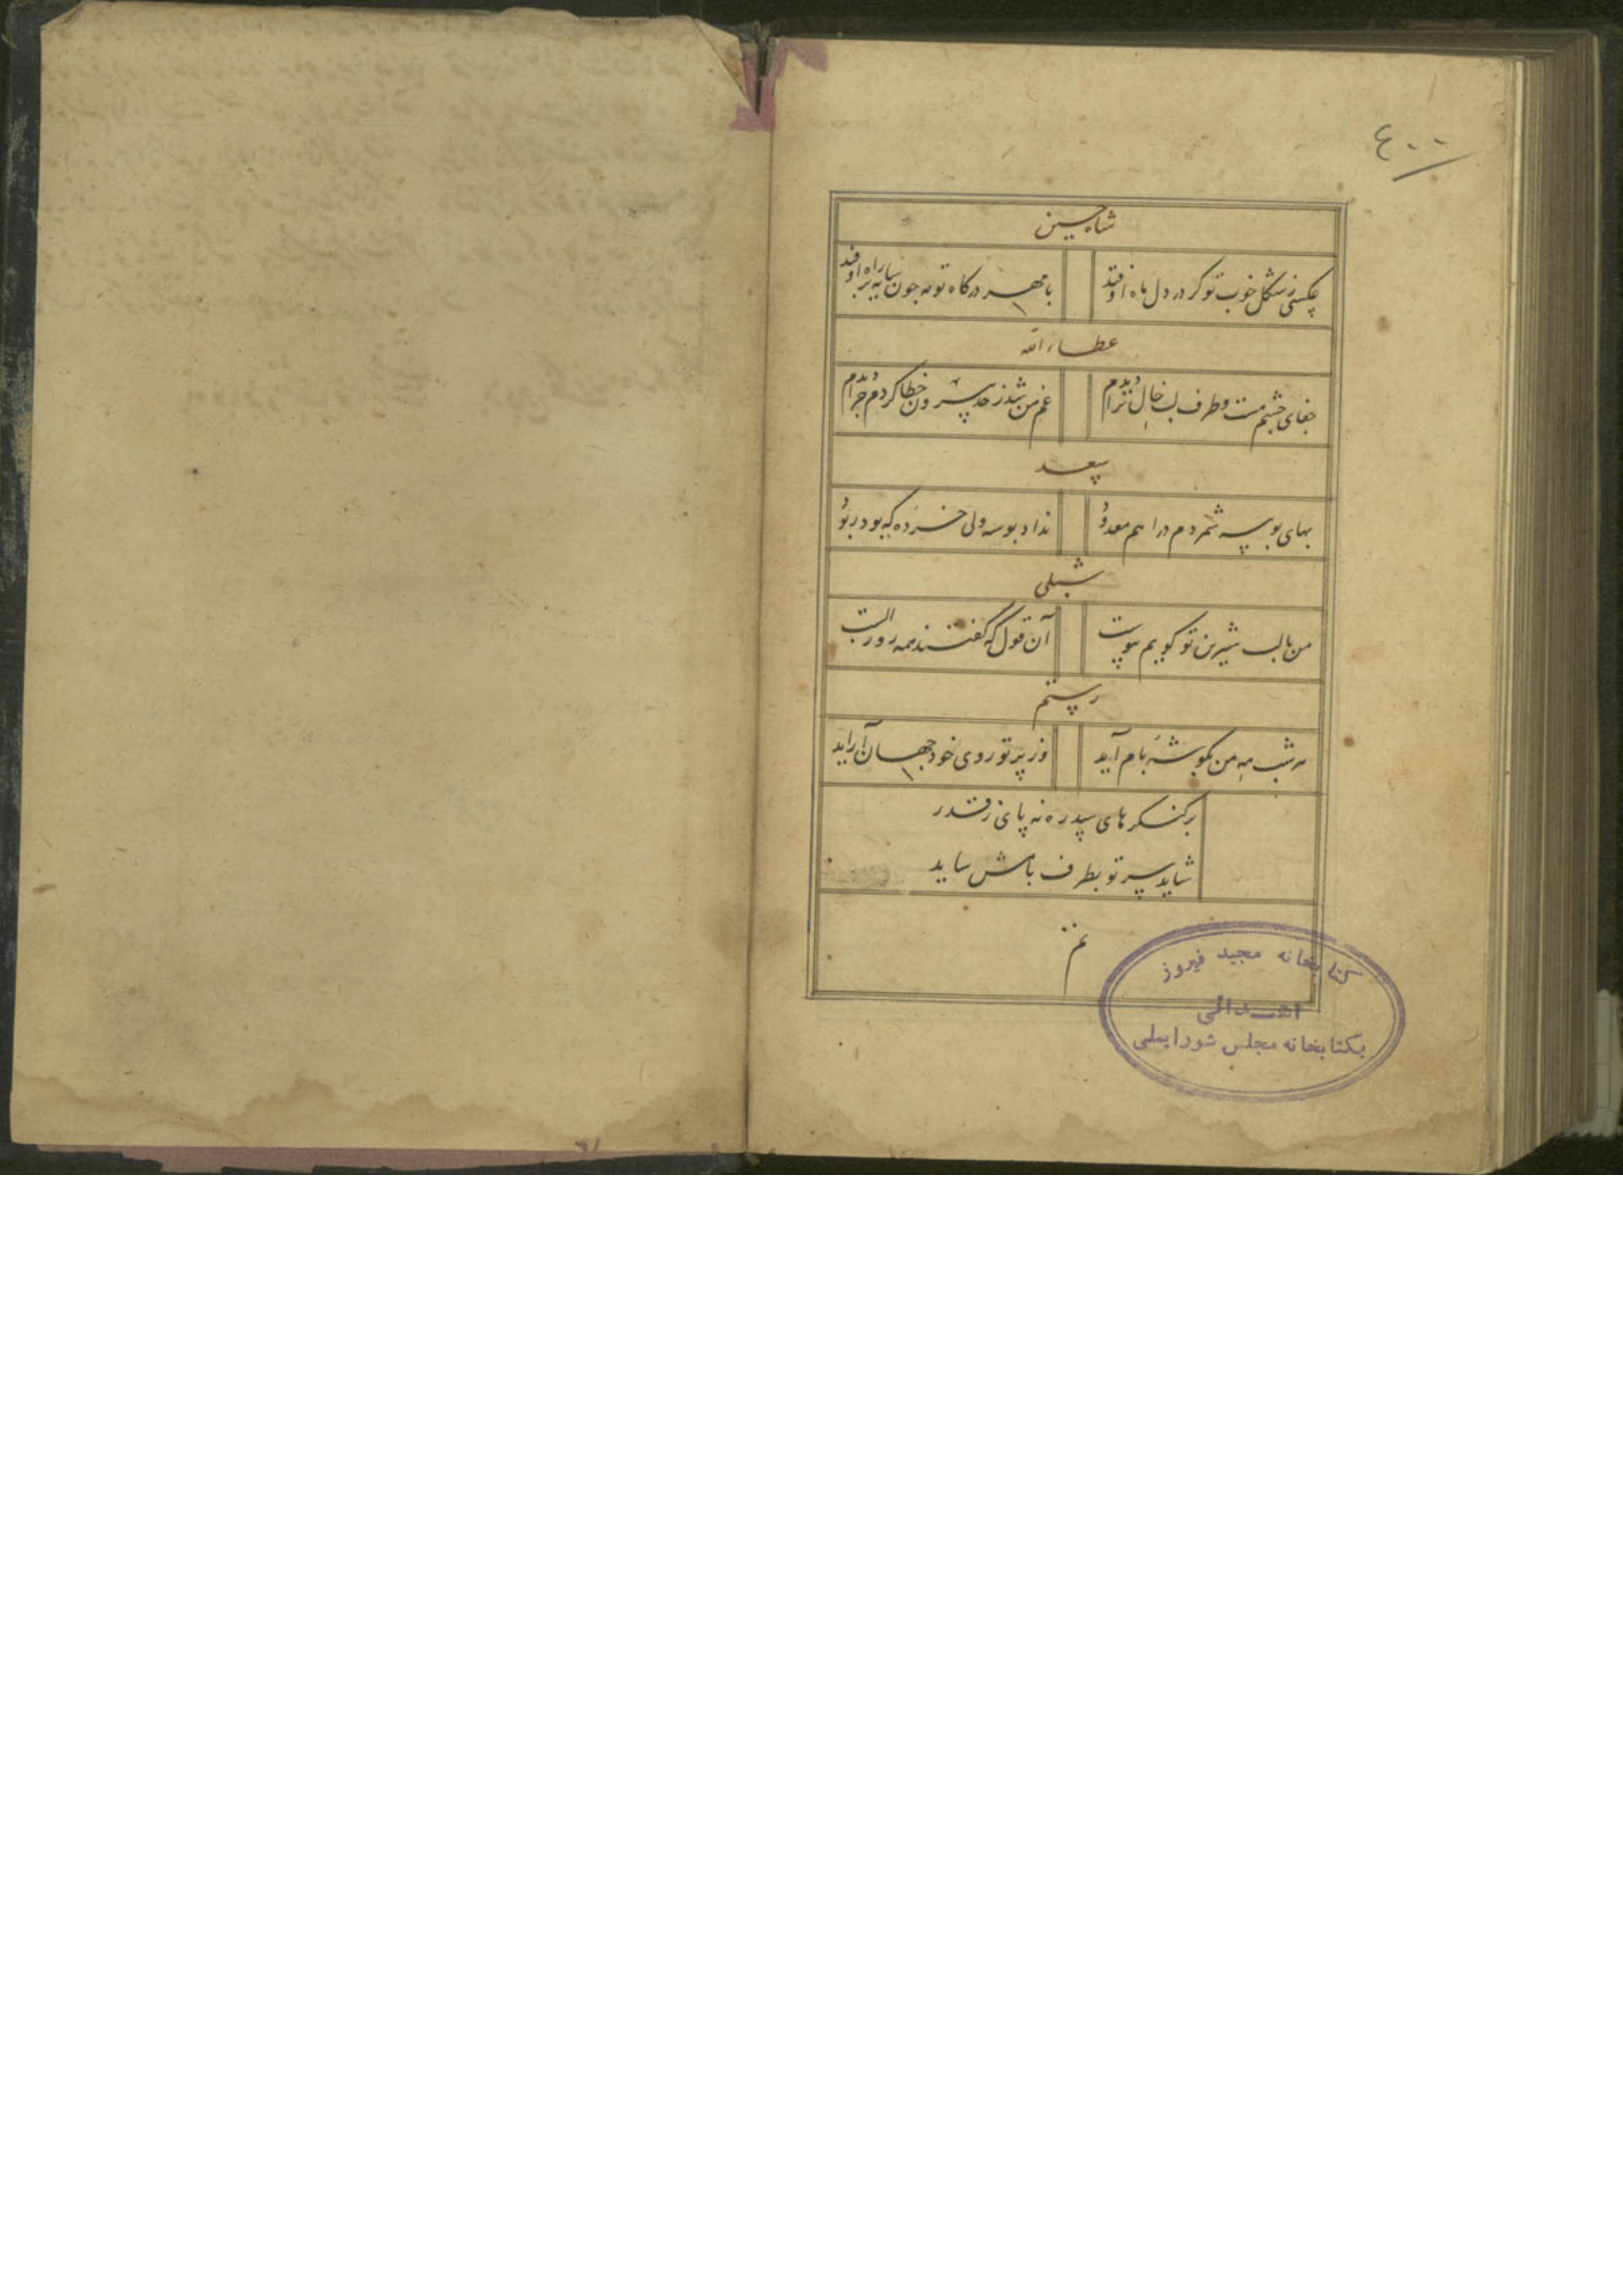 ٤٠٠
شاه حسین
عکسی ز شکل خوب تو گر در دل ماه اوفتد
با مهر درگاه تو مه چون سایه بر راه اوفتد
عطاء الله
جفای چشم مست و طرف لب خال ترا دیدم
غم من شد ز حد بیرون خطا کردم چرا دیدم
سعد
بهای بوسه شمردم دراهم معدود
نداد بوسه ولی خرده که بود ربود
شبلی
من با لب شیرین تو گویم پیوست
آن قول که گفتند همه روز الست
رستم
هر شب مه من بگوشه بام آید
وز پرتو روی خود جهان آراید
بر کنگرهای سدره نه پای ز قدر
شاید سر تو بطرف بامش ساید
تم
کتابخانه مجید فیروز
اهدائی
بکتابخانه مجلس شورایملی